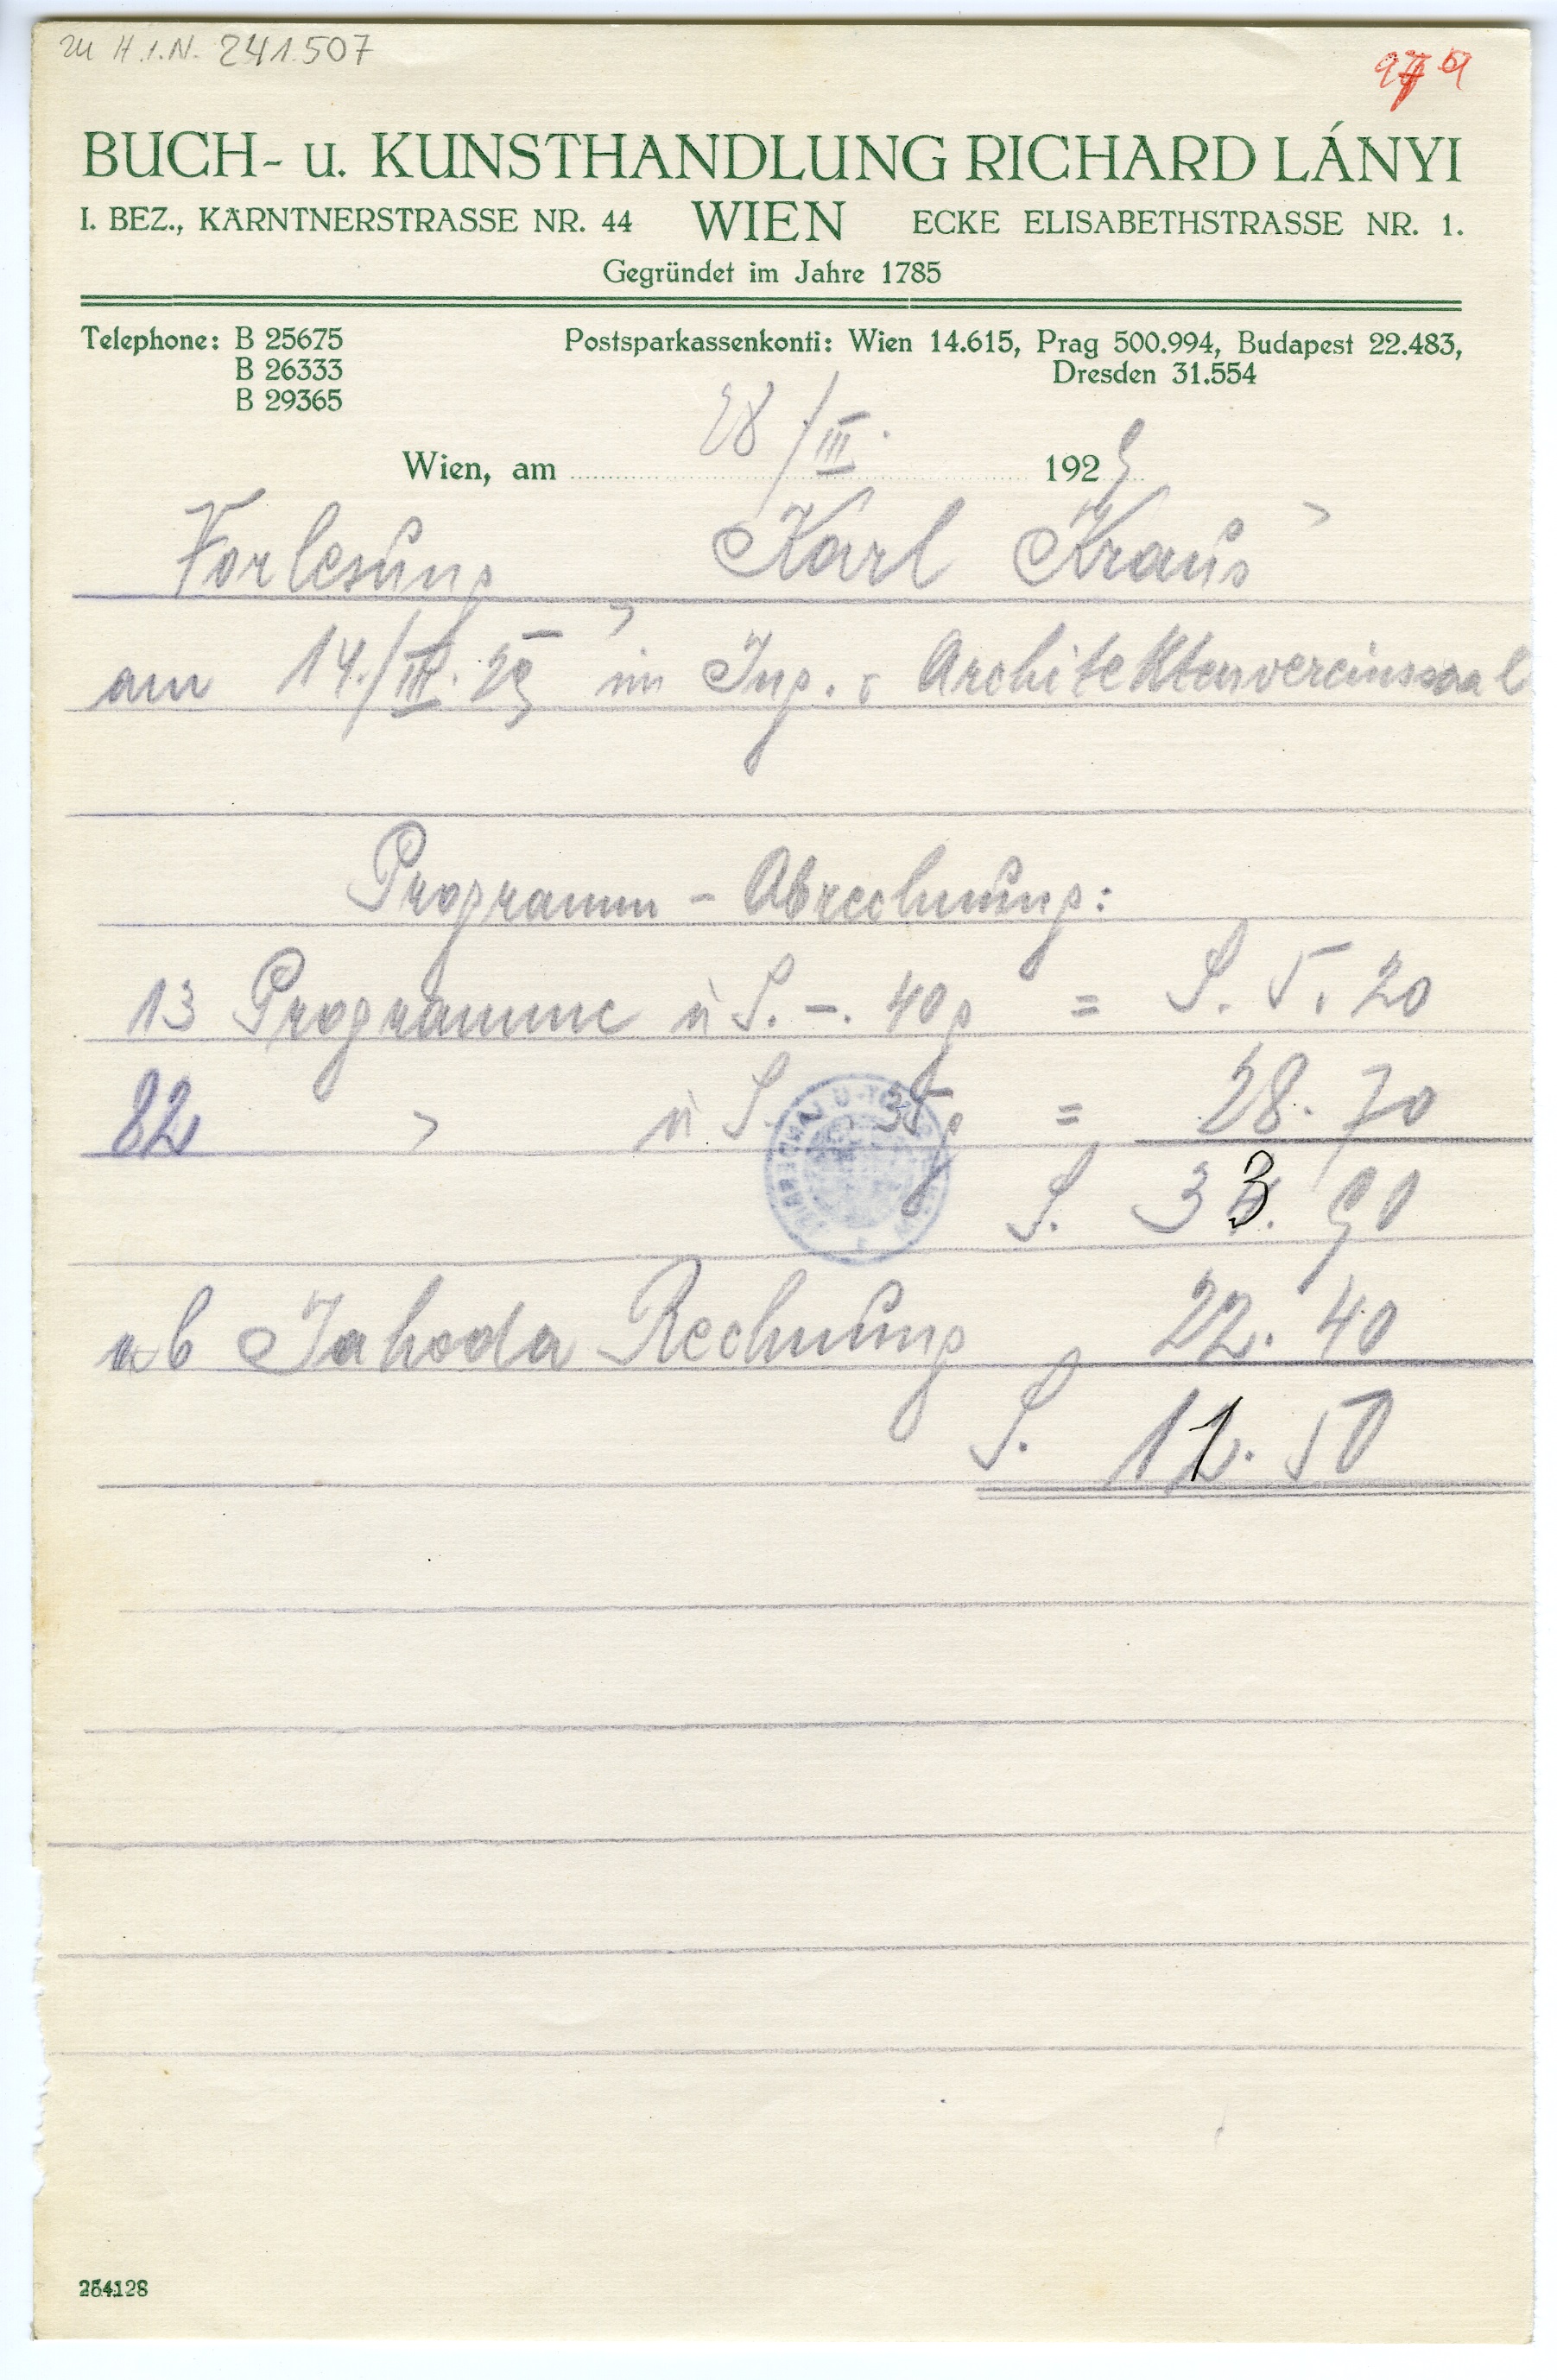 zu H.I.N. 241.507
BUCH- u. KUNSTHANDLUNG RICHARD LÁNYI
I. BEZ., KÄRNTNERSTRASSE NR. 44 WIEN ECKE ELISABETHSTRASSE NR. 1.
Gegründet im Jahre 1785
Telephone: B 25675
B 26333
B 29365
Postsparkassenkonti: Wien 14.615, Prag 500.994, Budapest 22.483,
Dresden 31.554
Wien, am 28/III. 1929
Vorlesung Karl Kraus
am 14./III. 29 im Ing. & Architektenvereinssaal
Programm - Abrechnung:
13 Programme à S. -. 40 g = S. 5. 20
82 " à S. 35 g = 28. 70
S. 33. 90
ab Jahoda Rechnung 22. 40
S. 11. 50
254128